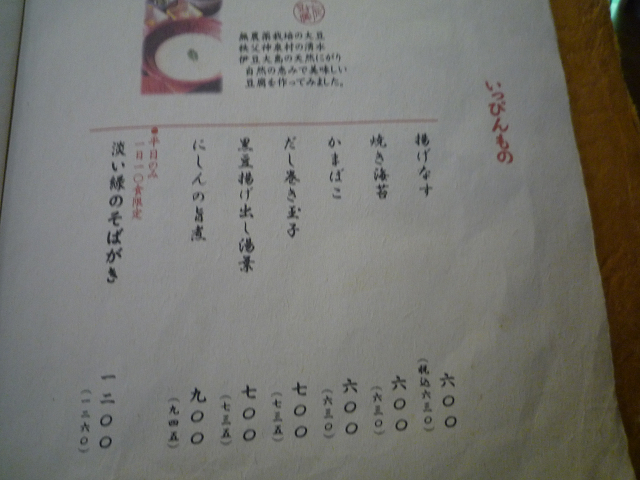 いっぴんもの
揚げなす 六〇〇
(税込六三〇)
焼き海苔 六〇〇
(六三〇)
かまぼこ 六〇〇
(六三〇)
だし巻き玉子 七〇〇
(七三五)
黒豆揚げ出し湯葉 七〇〇
(七三五)
にしんの旨煮 九〇〇
(九四五)
●平日のみ
一日一〇食限定
淡い緑のそばがき 一二〇〇
(一二六〇)
無農薬栽培の大豆
秩父神泉村の湧水
伊豆大島の天然にがり
自然の恵みで美味しい
豆腐を作ってみました。